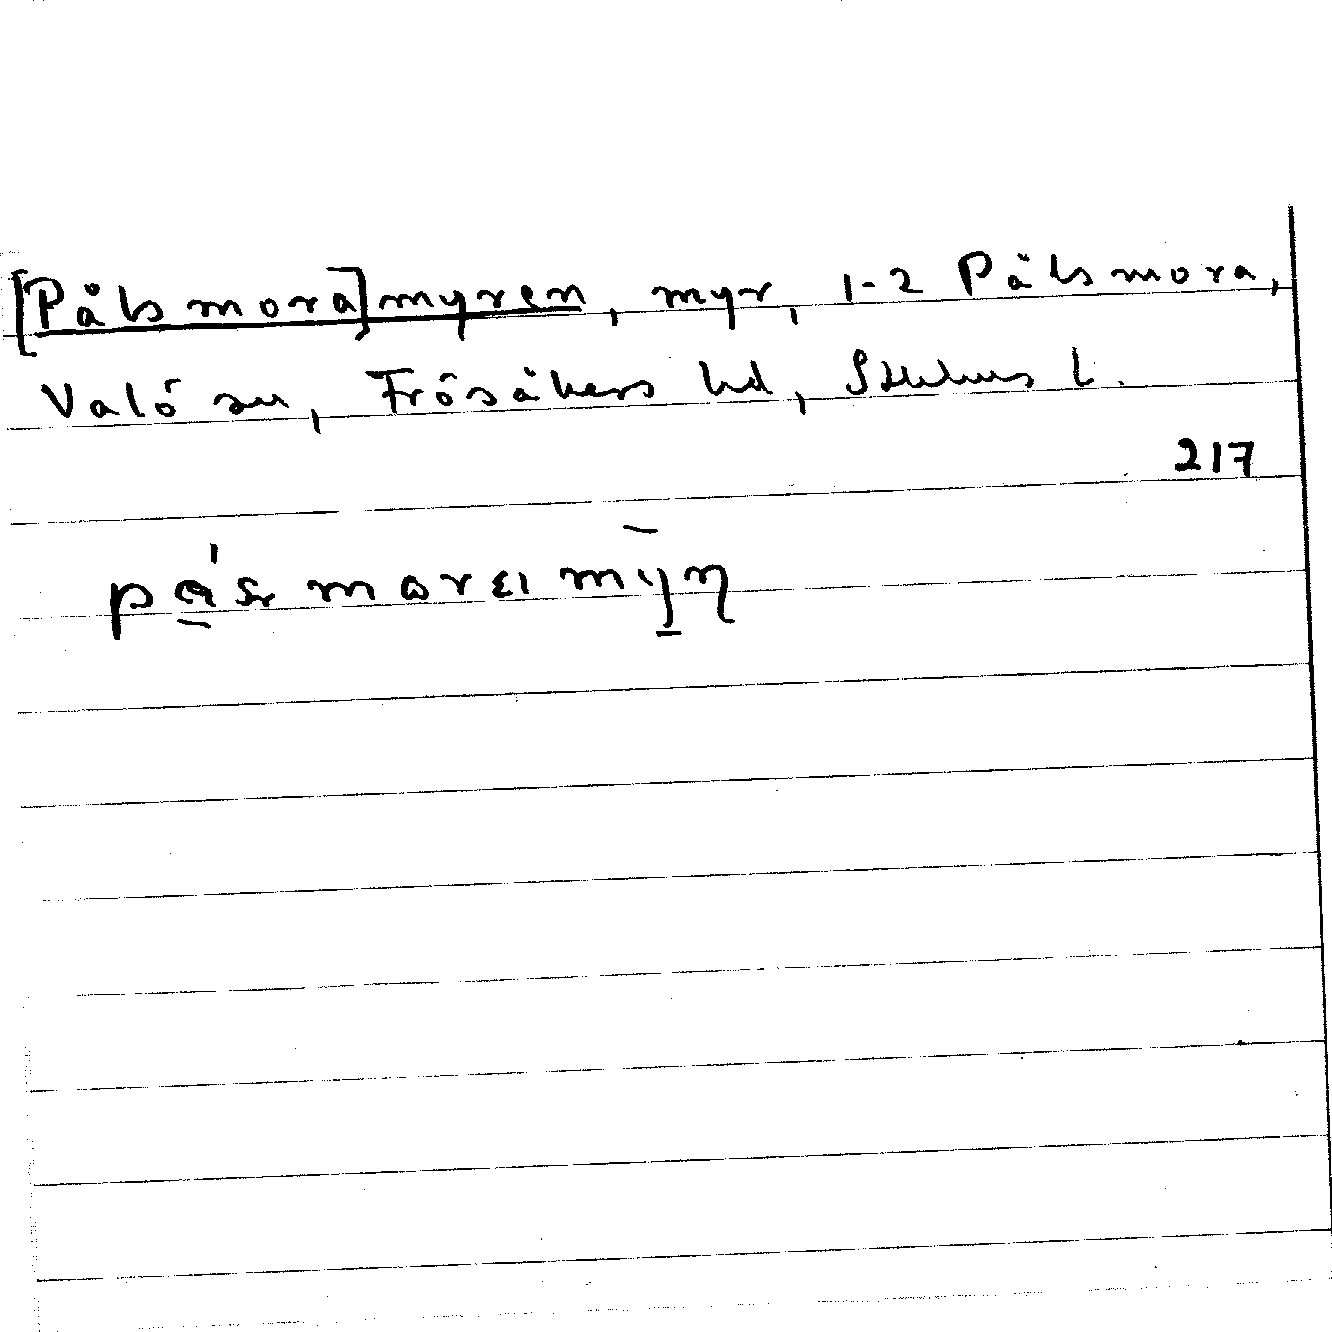 [Pålsmora]myren, myr, 1-2 Pålsmora,
Valö sn, Frösåkers hd, Sthlms l.
217